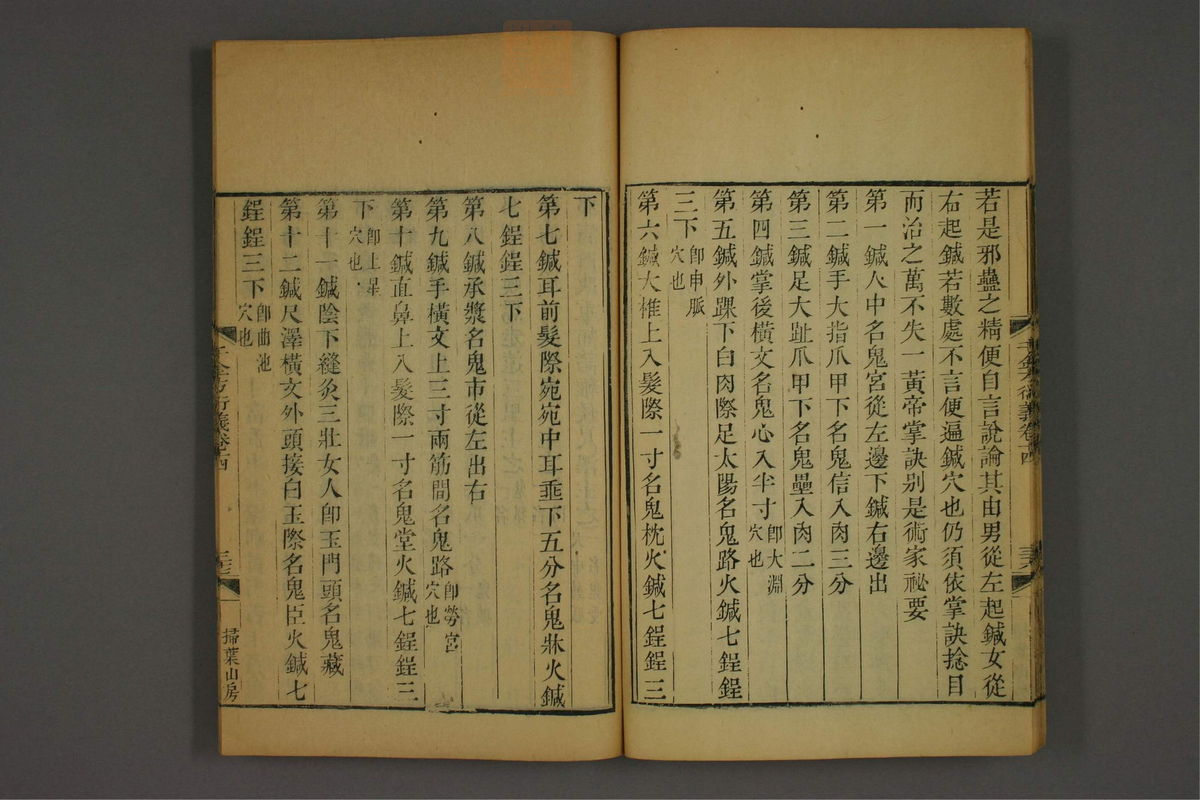 若是邪蠱之精便自言說論其由男從左起鍼女從
右起鍼若數處不言便遍鍼穴也仍須依掌訣捻目
而治之萬不失一黃帝掌訣別是術家祕要
第一鍼人中名鬼宮從左邊下鍼右邊出
第二鍼手大指爪甲下名鬼信入肉三分
第三鍼足大趾爪甲下名鬼壘入肉二分
第四鍼掌後橫文名鬼心入半寸卽大淵穴也
第五鍼外踝下白肉際足太陽名鬼路火鍼七鋥鋥
三下卽申脈穴也
第六鍼大椎上入髮際一寸名鬼枕火鍼七鋥鋥三
千金方衍義卷十四
下
第七鍼耳前髮際宛宛中耳垂下五分名鬼牀火鍼
七鋥鋥三下
第八鍼承漿名鬼市從左出右
第九鍼手橫文上三寸兩筋間名鬼路卽勞宮穴也
第十鍼直鼻上入髮際一寸名鬼堂火鍼七鋥鋥三
下卽上星穴也
第十一鍼陰下縫灸三壯女人卽玉門頭名鬼藏
第十二鍼尺澤橫文外頭接白玉際名鬼臣火鍼七
鋥鋥三下卽曲池穴也
千金方衍義卷十四
掃葉山房